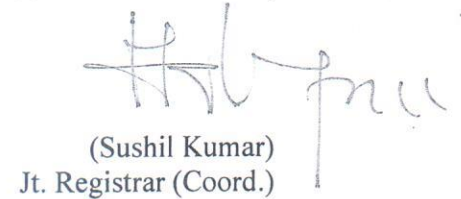 (Sushil Kumar)
Jt. Registrar (Coord.)